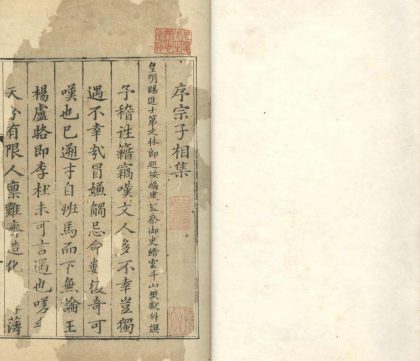 序宗子相集
皇明賜進士第文林郎巡按福建監察御史縉雲斗山樊獻科撰
予稽往籍竊嘆文人多不幸豈獨
遇不幸哉冒嫌觸忌命蹇後奇可
嘆也已遡才自班馬而下無論王
楊盧駱即李杜未可言遇也嗟乎
天之有限人稟難齊造化
薄